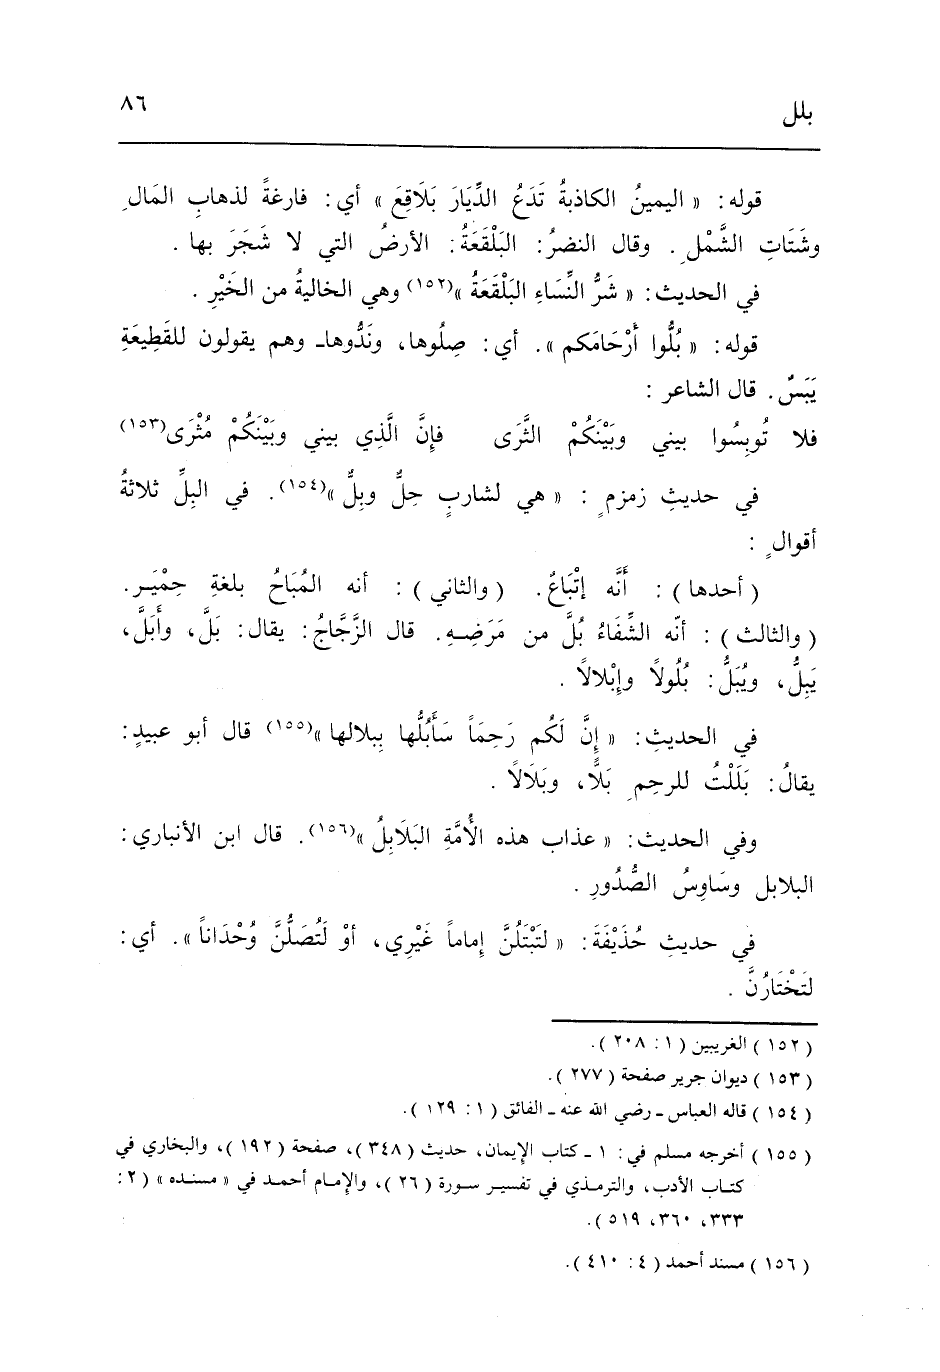 بلل ٨٦
قوله: « اليمينُ الكاذبةُ تَدَعُ الدِّيَارَ بَلَاقِعَ » أي: فارغةً لذهابِ المَالِ
وشَتَاتِ الشَّمْلِ. وقال النضرُ: البَلْقَعَةُ: الأرضُ التي لا شَجَرَ بها .
في الحديث: « شَرُّ النِّسَاءِ البَلْقَعَةُ »(١٥٢) وهي الخاليةُ من الخَيْرِ .
قوله: « بُلُّوا أَرْحَامَكم ». أي: صِلُوها، ونَدُّوهاـ وهم يقولون للقَطِيعَةِ
يَبَسٌ. قال الشاعر :
فلا تُوبِسُوا بيني وبَيْنَكُمْ الثَّرَى فإنَّ الَّذِي بيني وبَيْنَكُمْ مُثْرَى(١٥٣)
في حديثِ زمزمٍ : « هي لشاربٍ حِلٌّ وبِلٌّ »(١٥٤). في البِلِّ ثلاثةُ
أقوالٍ :
( أحدها ) : أَنَّه إتْبَاعٌ. ( والثاني ) : أنه المُبَاحُ بلغةِ حِمْيَـر.
( والثالث ) : أنّه الشِّفَاءُ بُلَّ من مَرَضِـهِ. قال الزَّجَّاجُ: يقال: بَلَّ، وأَبَلَّ،
يَبِلُّ، ويُبَلُّ: بُلُولاً وإبْلالاً .
في الحديثِ: « إنَّ لَكُم رَحِمَاً سَأَبُلُّها بِبلالها »(١٥٥) قال أبو عبيدٍ:
يقالُ: بَلَلْتُ للرحمِ بَلًّا، وبَلَالاً .
وفي الحديث: « عذاب هذه الأُمَّةِ البَلَابِلُ »(١٥٦). قال ابن الأنباري:
البلابل وسَاوِسُ الصُّدُورِ .
في حديثِ حُذَيْفَةَ: « لتَبْتَلُنَّ إماماً غَيْرِي، أوْ لَتُصَلُّنَّ وُحْدَاناً ». أي:
لتَخْتَارُنَّ .
( ١٥٢ ) الغريبين ( ١ : ٢٠٨ ).
( ١٥٣ ) ديوان جرير صفحة ( ٢٧٧ ).
( ١٥٤ ) قاله العباس ـ رضي الله عنه ـ الفائق ( ١ : ١٢٩ ).
( ١٥٥ ) أخرجه مسلم في: ١ ـ كتاب الإيمان، حديث ( ٣٤٨ )، صفحة ( ١٩٢ )، والبخاري في
كتـاب الأدب، والترمـذي في تفسيـر سـورة ( ٢٦ )، والإمـام أحمـد في « مسنـده » ( ٢ :
٣٣٣، ٣٦٠، ٥١٩ ).
( ١٥٦ ) مسند أحمد ( ٤ : ٤١٠ ).